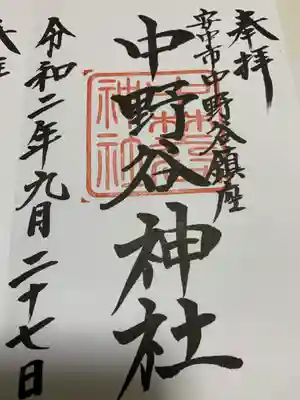 奉拝
安中市中野谷鎮座
中野谷神社
令和二年九月二十七日